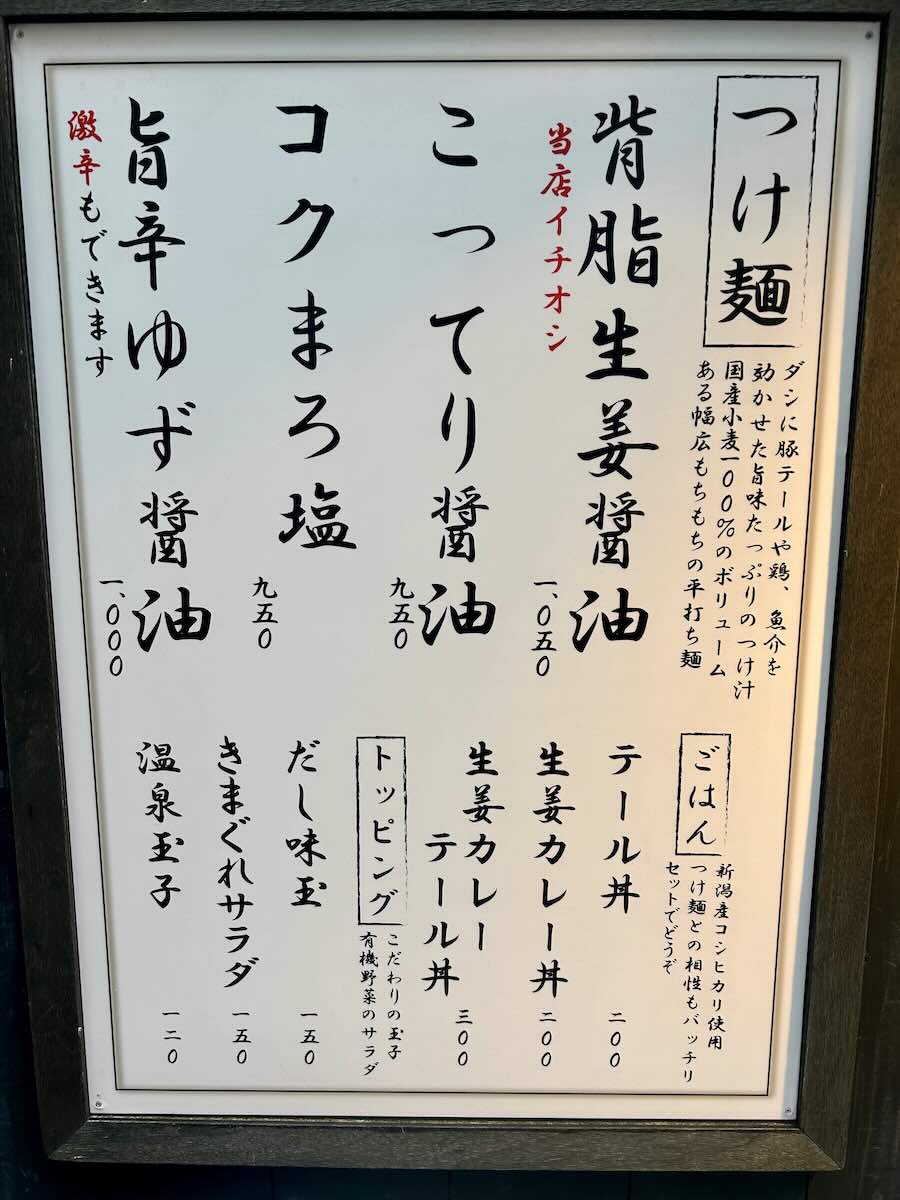 つけ麺
ダシに豚テールや鶏、魚介を
効かせた旨味たっぷりのつけ汁
国産小麦一00%のボリューム
ある幅広もちもちの平打ち麺
背脂生姜醤油
当店イチオシ
一、0五0
こってり醤油
九五0
コクまろ塩
九五0
旨辛ゆず醤油
激辛もできます
一、000
ごはん
新潟産コシヒカリ使用
つけ麺との相性もバッチリ
セットでどうぞ
テール丼
二00
生姜カレー丼
二00
生姜カレー
テール丼
三00
トッピング
こだわりの玉子
有機野菜のサラダ
だし味玉
一五0
きまぐれサラダ
一五0
温泉玉子
一二0